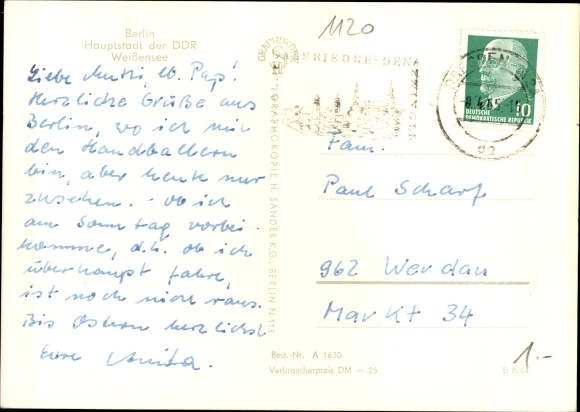 1120
Berlin
Hauptstadt der DDR
Weißensee
Liebe Mutti, lb. Pap!
Herzliche Grüße aus
Berlin, wo ich mit
den Handballern
bin, aber heute nur
zusehen. Ob ich
am Sonntag vorbei-
komme, d.h. ob ich
überhaupt fahre,
ist noch nicht raus.
Bis Ostern herzlichst
Eure Anita.
GRAPHOKOPIE H. SANDER K.G., BERLIN N 113
DRESDEN
10
DEUTSCHE
DEMOKRATISCHE REPUBLIK
Fam.
Paul Scharf
962 Werdau
Markt 34
Best.-Nr. A 1630
Verbraucherpreis DM —.25
1.-